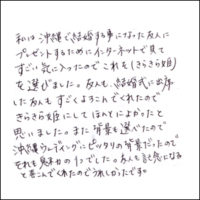 私は沖縄で結婚する事になった友人に
プレゼントするためにインターネットで見て
すごい気に入ったのでこれを(きらきら姫)
を選びました。友人も、結婚式に出席
した友人もすごくよろこんでくれたので
きらきら姫にしてほんとによかったと
思いました。また背景も選べたので
沖縄ウェディングにピッタリの背景だったので
それも決めの1つでした。友人も記念になる
とよろこんでくれたのでうれしかったです。